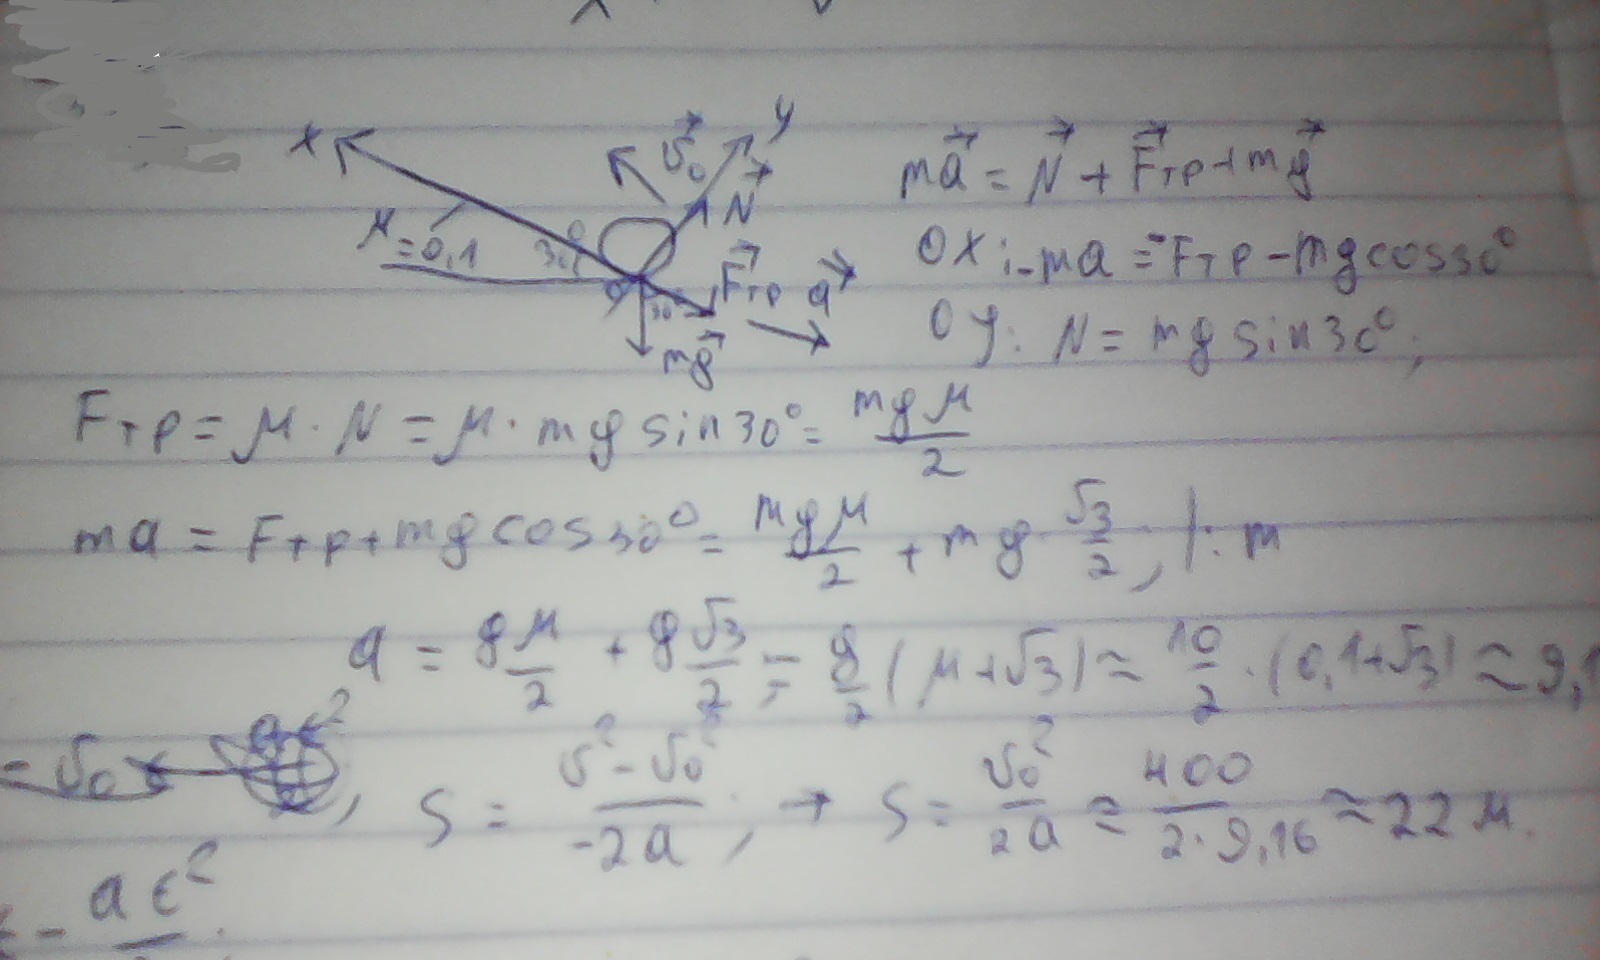 x v⃗₀ y
N⃗
μ = 0,1 30° F⃗тр a⃗
30°
mg⃗
ma⃗ = N⃗ + F⃗тр + mg⃗
OX: -ma = -Fтр - mg cos30°
Oy: N = mg sin30°;
Fтр = μ · N = μ · mg sin30° = mgμ/2
ma = Fтр + mg cos30° = mgμ/2 + mg · √3/2, | : m
a = gμ/2 + g√3/2 = g/2 (μ + √3) ≈ 10/2 · (0,1 + √3) ≈ 9,1
= v₀ , S = (v² - v₀²)/(-2a); → S = v₀²/2a ≈ 400/(2 · 9,16) ≈ 22 м.
t - at²/